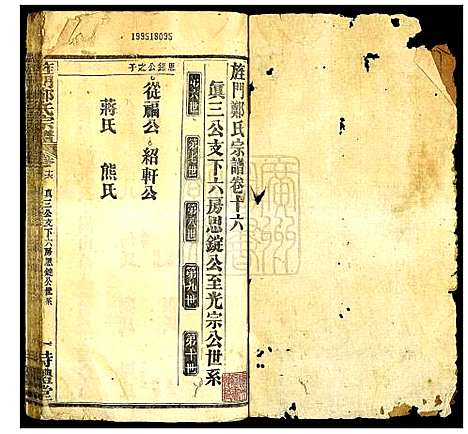 199518095
旌門鄭氏宗譜卷十六
眞三公支下六房恩錠公至光宗公世系
第六世
第七世
第八世
第九世
第十世
恩錠公之子
從福公
紹軒公
蔣氏
熊氏
旌門鄭氏宗譜
卷十六
真三公支下六房恩錠公世系
一